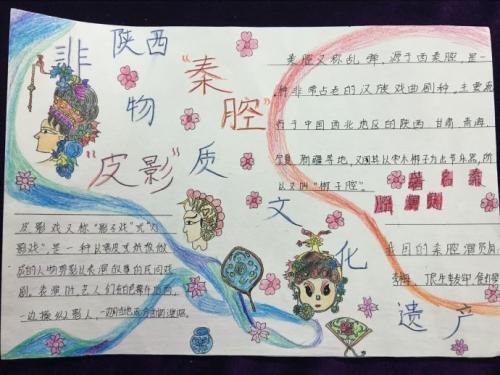 陕西
非
物
质
文
化
遗
产
"秦
腔"
"皮影"
秦腔又称乱弹，源于西秦腔，是一
种非常古老的汉族戏曲剧种，主要流
行于中国西北地区的陕西、甘肃、青海、
宁夏、新疆等地，又因其以枣木梆子为击节乐器，所
以又叫"梆子腔"。
著名表
我国的秦腔演员
皮影戏又称"影子戏"或"灯
影戏"，是一种以兽皮或纸板做
成的人物剪影以表演故事的民间戏
剧。表演时，艺人们在白色幕布后面，
一边操纵影人，一边